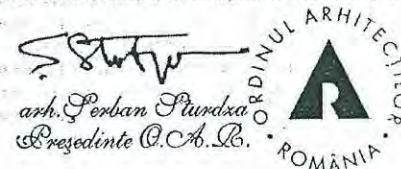 arh. Șerban Sturdza
Președinte O.A.R.
ORDINUL ARHITECȚILOR • ROMÂNIA •